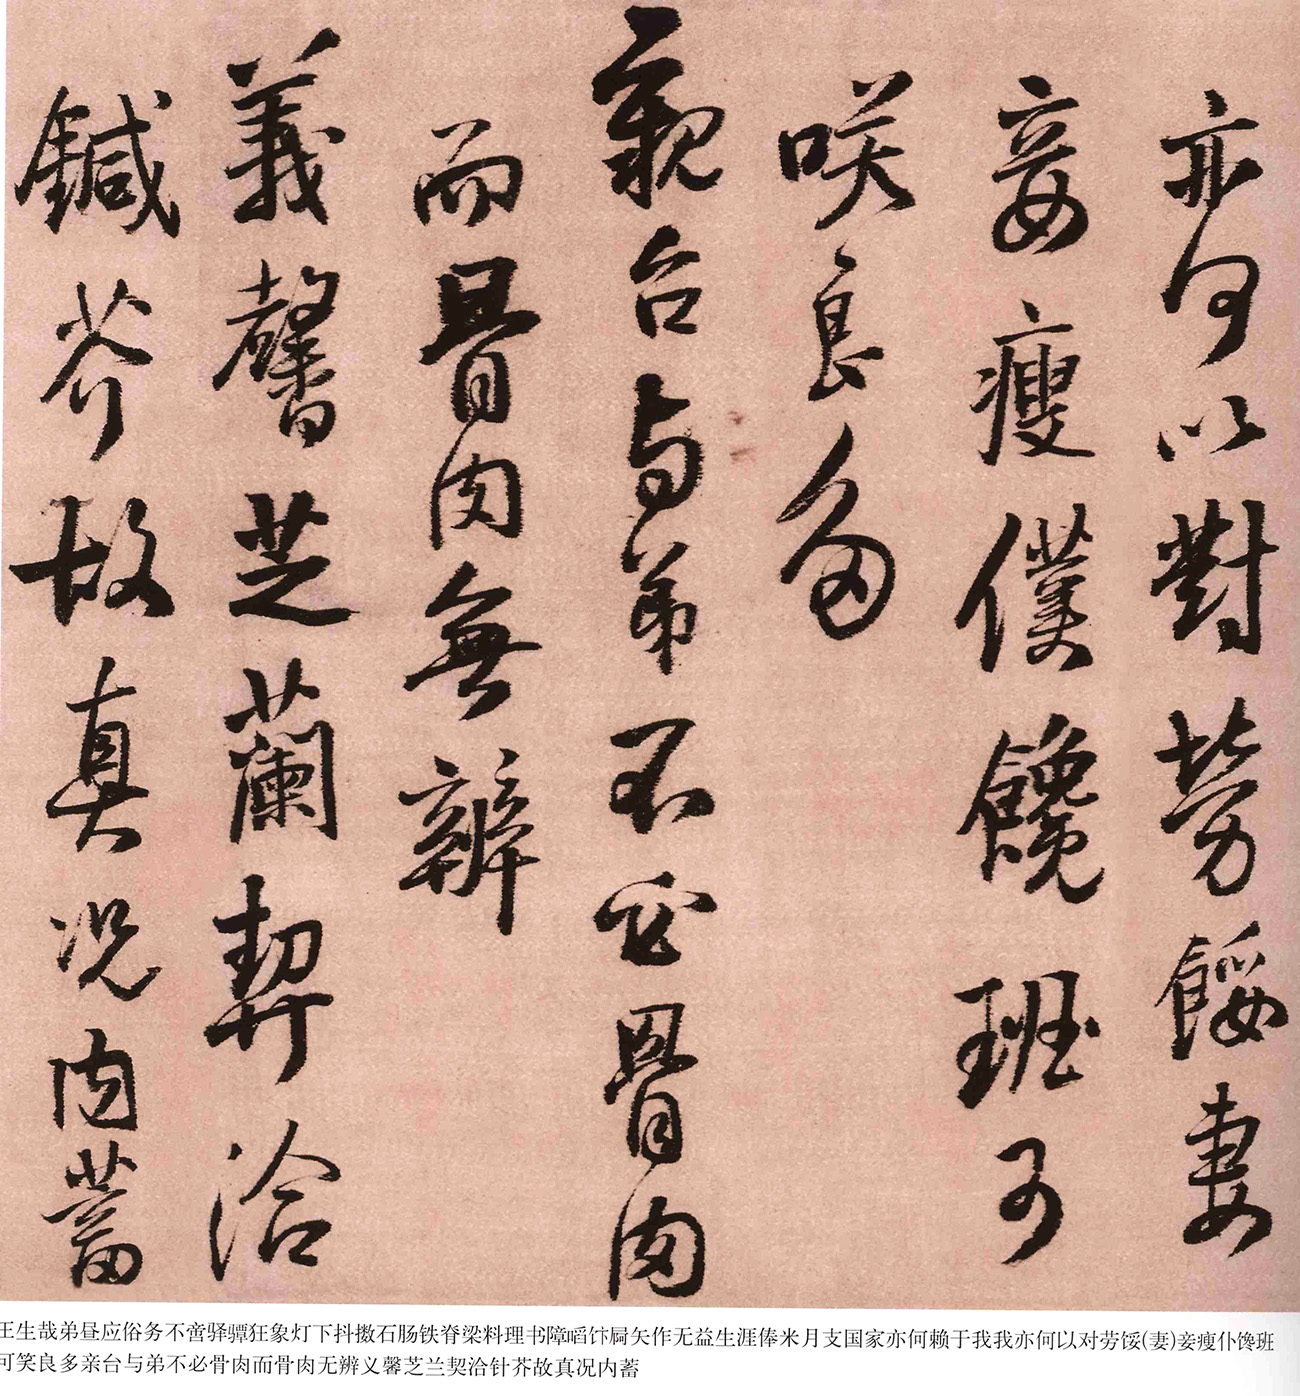 亦何以對勞餒妻
妾瘦僕饞班可
咲良多
親台与弟不必骨肉
而骨肉無辨
義馨芝蘭契洽
鍼芥故真况内蓄
王生哉弟昼应俗务不啻驿骠狂象灯下抖擞石肠铁脊梁料理书障嗂饣屙矢作无益生涯俸米月支国家亦何赖于我我亦何以对劳馁(妻)妾瘦仆馋班
可笑良多亲台与弟不必骨肉而骨肉无辨义馨芝兰契洽针芥故真况内蓄